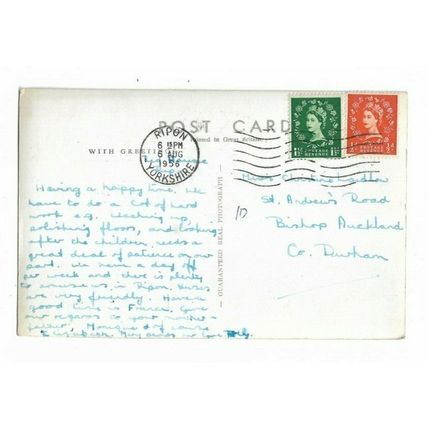 POST CARD
Printed in Great Britain
WITH GREETINGS
RIPON
6 PM
6 AUG
1956
YORKSHIRE
House
Having a happy time. We
have to do a lot of hard
work e.g. cleaning up,
polishing floors, and looking
after the children needs a
great deal of patience on our
part. We have a day off
per week and there is plenty
to amuse us in Ripon. Nurses
are very friendly. Have a
good time in France. Give
our regards to your mother
father, Monique of course
Elizabeth. love
GUARANTEED REAL PHOTOGRAPH
POSTAGE REVENUE
1½D
½D
Miss Christine
St. Andrews Road
Bishop Auckland
Co. Durham